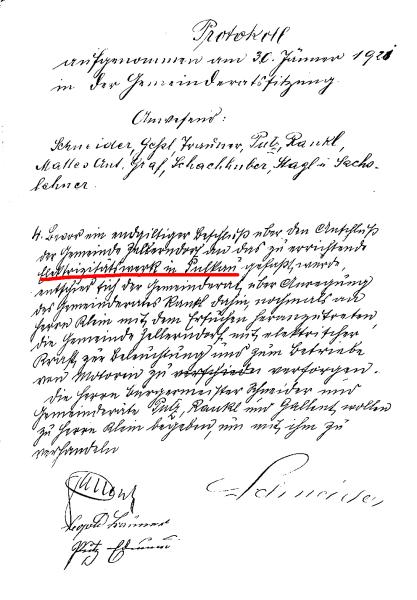 Protokoll
aufgenommen am 30. Jänner 1921
in der Gemeinderatssitzung.
Anwesend:
Schneider, Gessl, Trauner, Putz, Rankl,
Mattes Ant., Graf, Schachhuber, Hagl u. Sachs-
lehner.
4. Bevor ein endgiltiger Beschluß über den Anschluß
der Gemeinde Zellerndorf an das zu errichtende
Elektrizitätswerk in Pulkau gefaßt wurde,
entschied sich der Gemeinderat, über Anregung
des Gemeinderates Rankl dahin, nochmals an
Herrn Klein mit dem Ersuchen heranzutreten,
die Gemeinde Zellerndorf mit elektrischer
Kraft zur Beleuchtung und zum Betriebe
von Motoren zu versorgen.
Die Herrn Bürgermeister Schneider und
Gemeinderäte Putz, Rankl und Gallent, wollen
zu Herrn Klein begeben, um mit ihm zu
verhandeln
Schneider
Leopold Trauner
Putz